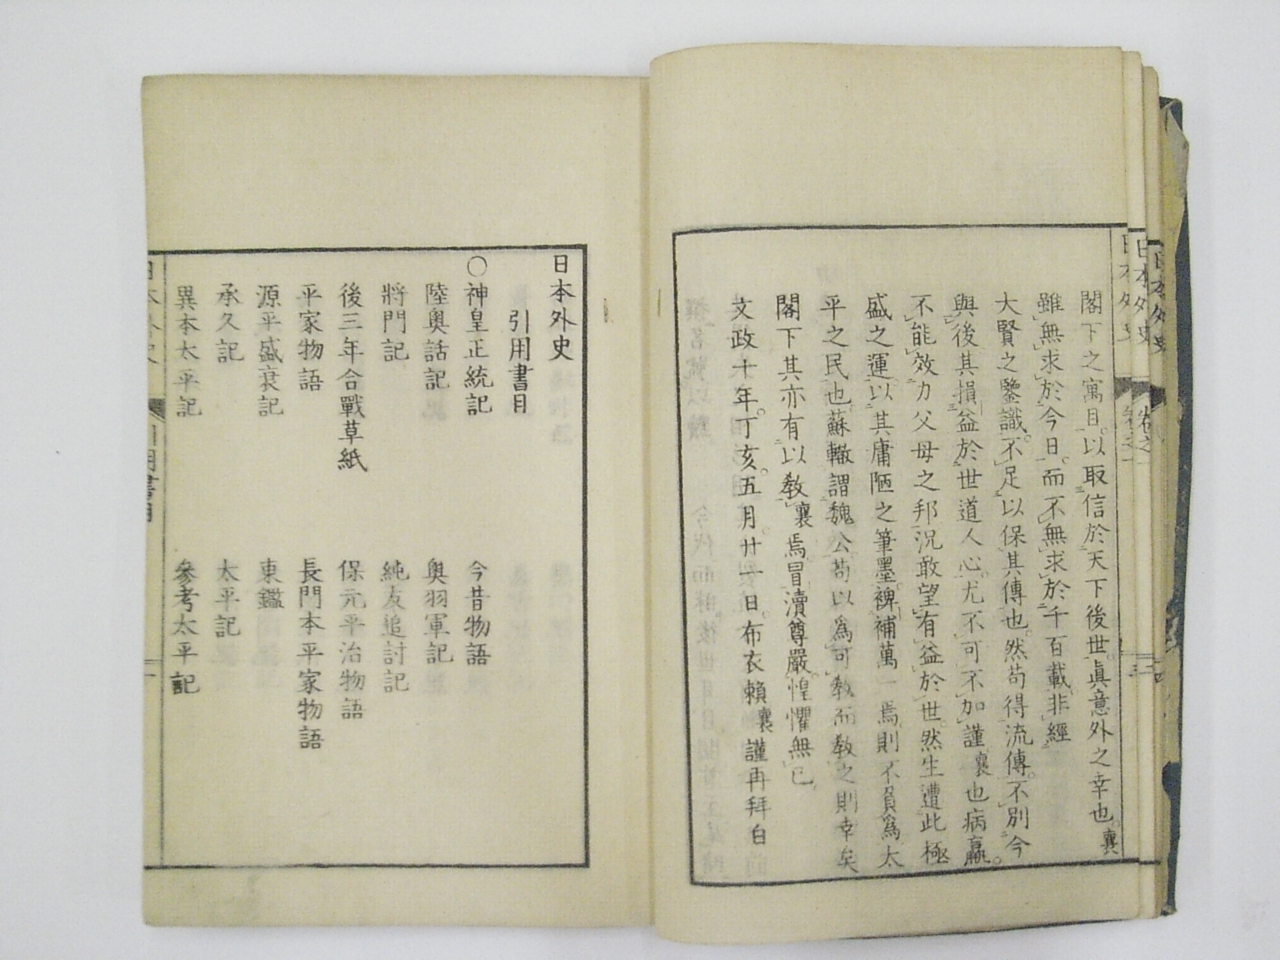 閣下之寓目。以取信於天下後世。眞意外之幸也。襄
雖無求於今日。而不無求於千百載。非經
大賢之鑒識。不足以保其傳也。然苟得流傳。不別今
與後其損益於世道人心。尤不可不加謹。襄也病羸。
不能效力父母之邦。況敢望有益於世。然生遭此極
盛之運。以其庸陋之筆墨。裨補萬一焉。則不負爲太
平之民也。蘇轍謂魏公。苟以爲可教而教之則幸矣
閣下其亦有以教襄焉。冒瀆尊嚴。惶懼無已。
文政十年。丁亥。五月廿一日。布衣賴襄謹再拜白
日本外史
引用書目
○神皇正統記 今昔物語
陸奧話記 奧羽軍記
將門記 純友追討記
後三年合戰草紙 保元平治物語
平家物語 長門本平家物語
源平盛衰記 東鑑
承久記 太平記
異本太平記 參考太平記
日本外史 引用書目 一
日本外史 卷之一 三
日本外史